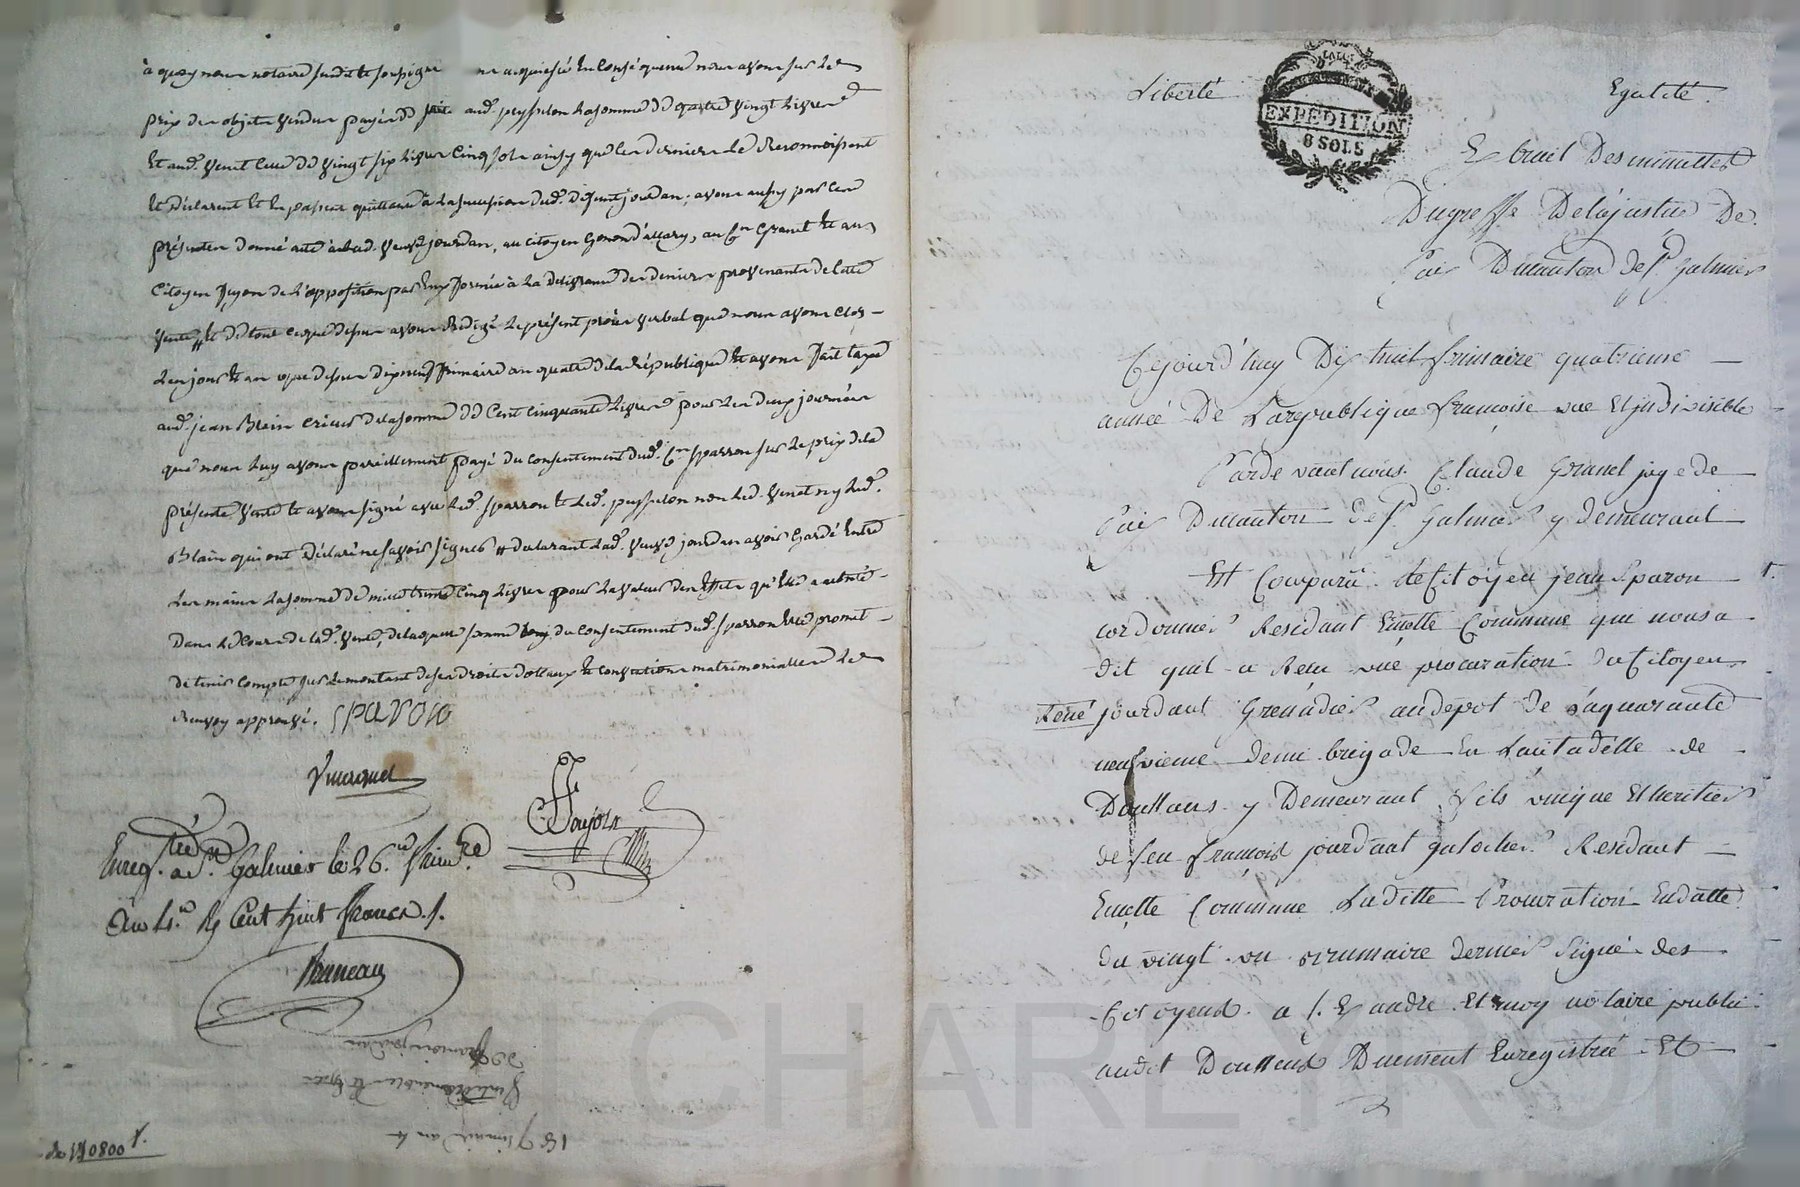 à quoy nous notaire susdit et soussigné ayant acquiescé En Conséquence nous avons sur les
prix des objets vendus payé audt peysselon la somme de quatre vingt livres
Et audt venet celle de vingt six livres cinq sols ainsy que ces derniers le Reconnoissent
Et déclarent Et En passent quittance à la succession dudt défunt jourdan; avons aussy par ces
présentes donné acte à lad. veuve jourdan, au citoyen Gonon d'allary, au Cen Granel Et au
Citoyen de l'opposition par Eux formée à la délivrance des deniers provenants de late
vente, Et de tout ce que dessus avons Rédigé le présent procès verbal que nous avons clos
les jours Et an que dessus dixneuf frimaire an quatre de la République Et avons fait taxe
audt jean Blein crieur de la somme de Cent cinquante livres pour les deux journées
que nous luy avons pareillement payé du consentement dudt Cen sparron sur le prix de la
présente vente Et avons signé avec ledt sparron Et ledt peysselon non led. venet ny ledt
Blein qui ont déclaré ne savoir signer // declarant lade veuve jourdan avoir Gardé Entre
les mains la somme de mille trente cinq livres pour la valeur des Effets qu'elle a acheté
Dans le Cours de lade vente, de laquelle somme du consentement dudt sparron Elle promet
de tenir compte sur le montant de ses droits dotaux Et conventions matrimoniales les
Renvoy approuvé. SPARON
Enregtré à St Galmier le 26me frimre
an 4me Cent huit francs
Bruneau
de françois jourdan
18 frimaire an 4
10800 #
Liberté Egalité.
EXPEDITION
8 SOLS
Extrait Des minuttes
Du greffe De la justice De
Paix Du canton de St galmier
Cejourd'huy Dix huit frimaire quatrieme
année De La republique françoise une Et indivisible
Pardevant nous Claude Granel juge de
Paix Du canton de St galmier y demeurant
Est Comparu le Citoyen jean Sparon
cordonnier Residant En cette Commune qui nous a
dit quil a Recu une procuration du Citoyen
René jourdant Grenadier au depot de La quarante
neufvieme demi brigade En La citadelle de
Doullens y Demeurant fils unique Et heritier
de feu françois jourdant galocher Residant
En cette Commune Laditte Procuration En datte
du vingt un brumaire dernier Signé des
Citoyens Et notaire public
audit Doullens Duement Enregistrée Et
CHAREYRON